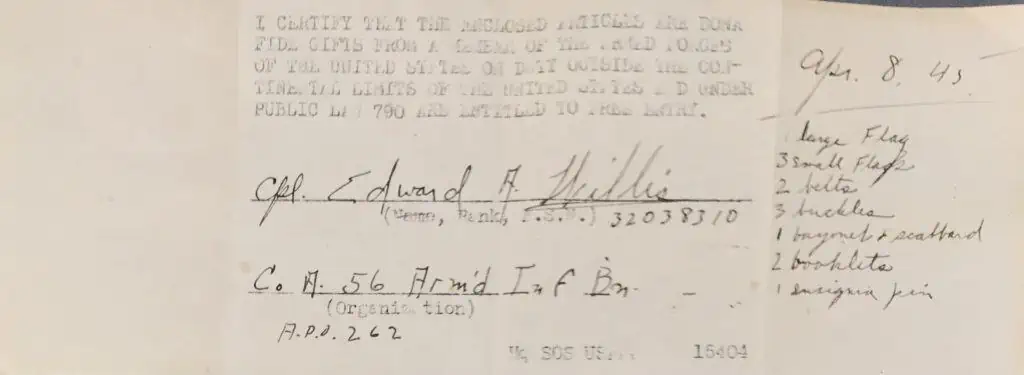 I CERTIFY THAT THE ENCLOSED ARTICLES ARE BONA
FIDE GIFTS FROM A MEMBER OF THE ARMED FORCES
OF THE UNITED STATES ON DUTY OUTSIDE THE CON-
TINENTAL LIMITS OF THE UNITED STATES AND UNDER
PUBLIC LAW 790 ARE ENTITLED TO FREE ENTRY.
Cpl. Edward A. Willis
(Name, Rank, A.S.N.) 32038310
Co. A. 56 Arm'd Inf Bn.
(Organization)
A.P.O. 262
Hq SOS 15404
Apr. 8, 45
1 large Flag
3 small Flags
2 belts
3 buckles
1 bayonet & scabbard
2 booklets
1 insignia pin